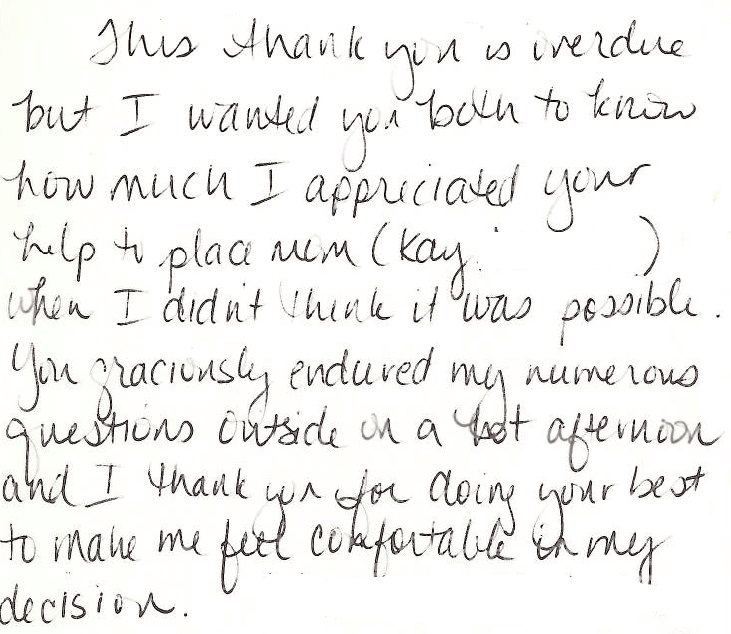 This thank you is overdue
but I wanted you both to know
how much I appreciated your
help to place mom (Kay )
when I didn't think it was possible.
You graciously endured my numerous
questions outside on a hot afternoon
and I thank you for doing your best
to make me feel comfortable in my
decision.